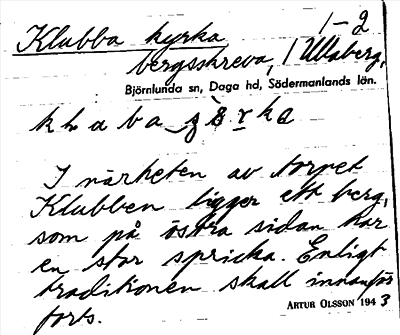 Klubba kyrka 1-2
bergsskreva, / Ullaberg,
Björnlunda sn, Daga hd, Södermanlands län.
I närheten av torpet
Klubben ligger ett berg,
som på östra sidan har
en stor spricka. Enligt
traditionen skall innanför
forts.
ARTUR OLSSON 1943